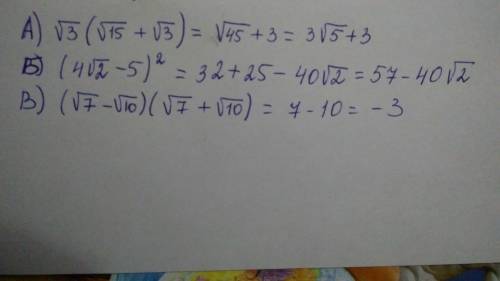 А) √3 (√15 + √3) = √45 + 3 = 3√5 + 3
Б) (4√2 - 5)² = 32 + 25 - 40√2 = 57 - 40√2
В) (√7 - √10)(√7 + √10) = 7 - 10 = -3